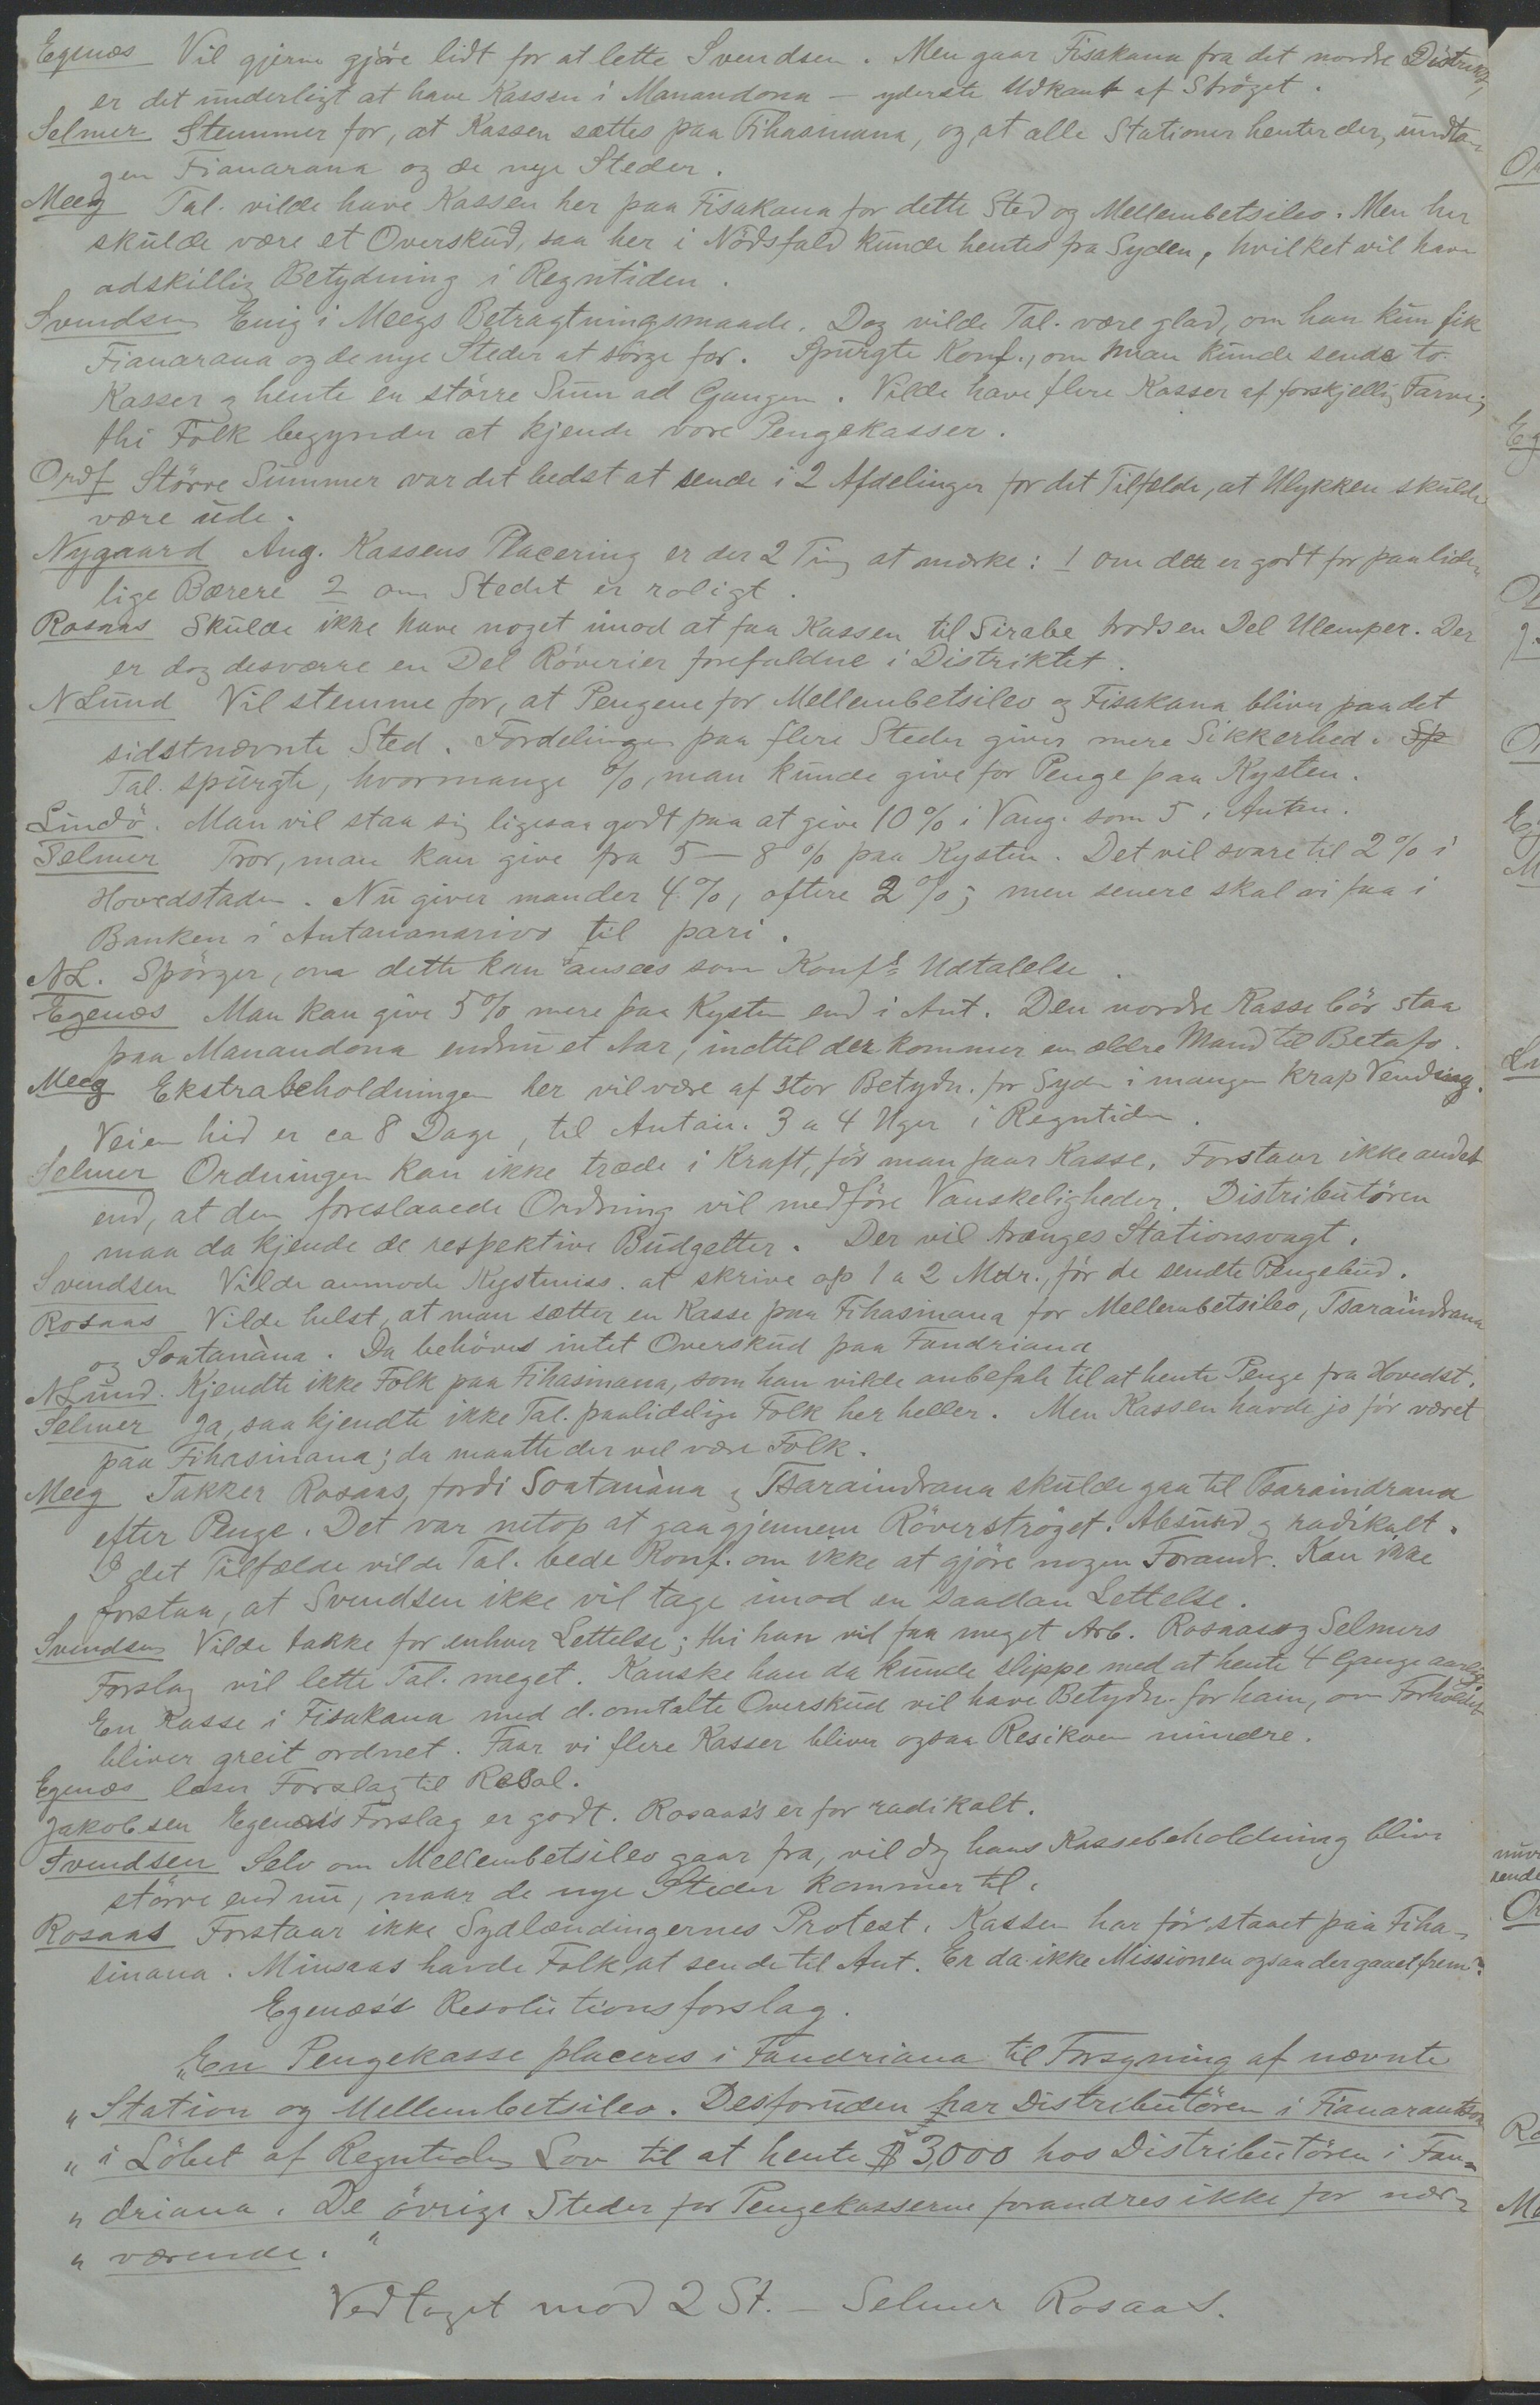 Egenæs Vil gjerne gjöre lidt for at lette Svendsen. Men gaar Fisakana fra det nordre Distrikt,
er det underligt at have Kassen i Manandona — yderste Udkant af Ströget.
Selmer Stemmer for, at Kassen sættes paa Fihasinana, og at alle Stationer henter der, undta-
gen Fianarana og de nye Steder.
Meeg Tal. vilde have Kassen her paa Fisakana for dette Sted og Mellembetsileo. Men her
skulde være et Overskud, saa her i Nödsfald kunde hentes fra Syden, hvilket vil have
adskillig Betydning i Regntiden.
Svendsen Enig i Meegs Betragtningsmaade. Dog vilde Tal. være glad, om han kun fik
Fianarana og de nye Steder at sörge for. Spurgte Konf., om man kunde sende to
Kasser og hente en större Sum ad Gangen. Vilde have flere Kasser af forskjellig Farve;
thi Folk begynder at kjende vore Pengekasser.
Ordf Större Summer var det bedst at sende i 2 Afdelinger for det Tilfælde, at Ulykken skulde
være ude.
Nygaard Ang. Kassens Placering er der 2 Ting at mærke: 1 om der er godt for paalide-
lige Bærere 2 om Stedet er roligt.
Rosaas Skulde ikke have noget imod at faa Kassen til Sirabe trods en Del Ulemper. Der
er dog desværre en Del Röverier forefaldne i Distriktet.
N Lund Vil stemme for, at Pengene for Mellembetsileo og Fisakana bliver paa det
sidstnævnte Sted. Fordelingen paa flere Steder giver mere Sikkerhed. Sp
Tal. spurgte, hvormange %, man kunde give for Penge paa Kysten.
Lindö. Man vil staa sig ligesaa godt paa at give 10 % i Vang. som 5 i Antan.
Selmer Tror, man kan give fra 5 — 8 % paa Kysten. Det vil svare til 2 % i
Hovedstaden. Nu giver man der 4 %, oftere 2 %; men senere skal vi faa i
Banken i Antananarivo til pari.
NL. Spörger, om dette kan ansees som Konfs Udtalelse.
Egenæs Man kan give 5 % mere paa Kysten end i Ant. Den nordre Kasse bör staa
paa Manandona endnu et Aar, indtil der kommer en ældre Mand til Betafo.
Meeg Ekstrabeholdningen her vil være af stor Betydn. for Syden i mangen krap Vending.
Veien hid er ca 8 Dage, til Antan. 3 a 4 Uger i Regntiden.
Selmer Ordningen kan ikke træde i Kraft, för man faar Kasse. Forstaar ikke andet
end, at den foreslaaede Ordning vil medföre Vanskeligheder. Distributören
maa da kjende de respektive Budgetter. Der vil trænges Stationsvagt.
Svendsen Vilde anmode Kystmiss. at skrive op 1 a 2 Mdr., för de sendte Pengebud.
Rosaas Vilde helst, at man sætter en Kasse paa Fihasinana for Mellembetsileo, Tsaraindrana
og Soatanàna. Da behöves intet Overskud paa Fandriana
N Lund. Kjendte ikke Folk paa Fihasinana, som han vilde anbefale til at hente Penge fra Hovedst.
Selmer Ja, saa kjendte ikke Tal. paalidelige Folk her heller. Men Kassen havde jo för været
paa Fihasinana; da maatte der vel være Folk.
Meeg Takker Rosaas, fordi Soatanàna og Tsaraindrana skulde gaa til Tsaraindrana
efter Penge. Det var netop at gaa gjennem Röverströget. Absurd og radikalt.
I det Tilfælde vilde Tal. bede Konf. om ikke at gjöre nogen Forandr. Kan ikke
forstaa, at Svendsen ikke vil tage imod en saadan Lettelse.
Svendsen Vilde takke for enhver Lettelse; thi han vil faa meget Arb. Rosaas og Selmers
Forslag vil lette Tal. meget. Kanske han da kunde slippe med at hente 4 Gange aarlig
En Kasse i Fisakana med d. omtalte Overskud vil have Betydn. for ham, om Forholdet
bliver greit ordnet. Faar vi flere Kasser bliver ogsaa Resikoen mindre.
Egenæs læser Forslag til Resol.
Jakobsen Egenæs's Forslag er godt. Rosaas's er for radikalt.
Svendsen Selv om Mellembetsileo gaar fra, vil dog hans Kassebeholdning blive
större end nu, naar de nye Steder kommer til.
Rosaas Forstaar ikke Sydlændingernes Protest. Kassen har för staaet paa Fiha-
sinana. Minsaas havde Folk at sende til Ant. Er da ikke Missionen ogsaa der gaaet frem?
Egenæs's Resolutionsforslag.
„En Pengekasse placeres i Fandriana til Forsyning af nævnte
„Station og Mellembetsileo. Desforuden har Distributören i Fianarantsoa
„i Löbet af Regntiden Lov til at hente $ 3,000 hos Distributören i Fan-
„driana. De övrige Steder for Pengekasserne forandres ikke for nær-
„værende."
Vedtaget mod 2 St. — Selmer Rosaas.